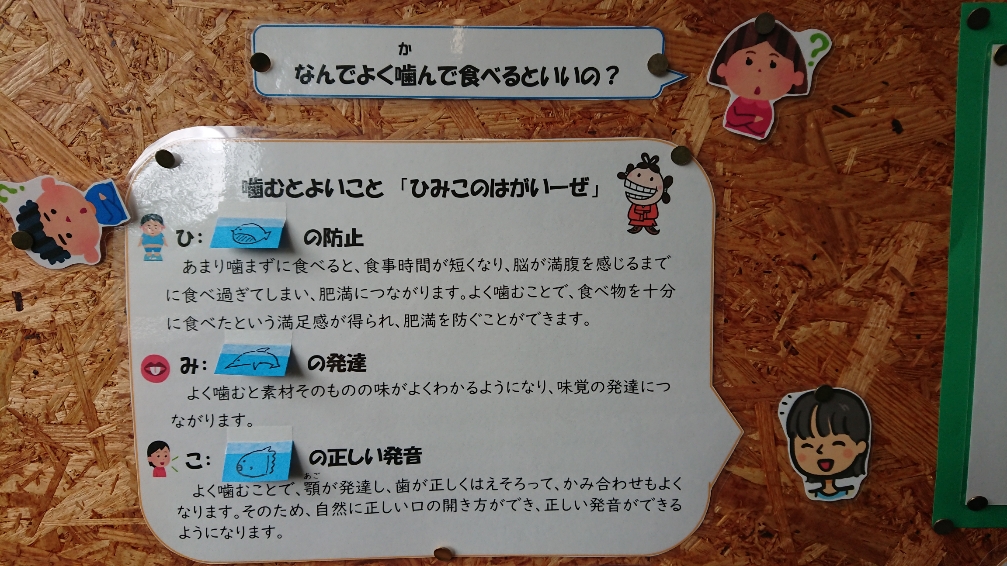 なんでよく噛んで食べるといいの？
か
噛むとよいこと 「ひみこのはがいーぜ」
ひ： の防止
あまり噛まずに食べると、食事時間が短くなり、脳が満腹を感じるまで
に食べ過ぎてしまい、肥満につながります。よく噛むことで、食べ物を十分
に食べたという満足感が得られ、肥満を防ぐことができます。
み： の発達
よく噛むと素材そのものの味がよくわかるようになり、味覚の発達につ
ながります。
こ： の正しい発音
あご
よく噛むことで、顎が発達し、歯が正しくはえそろって、かみ合わせもよく
なります。そのため、自然に正しい口の開き方ができ、正しい発音ができる
ようになります。